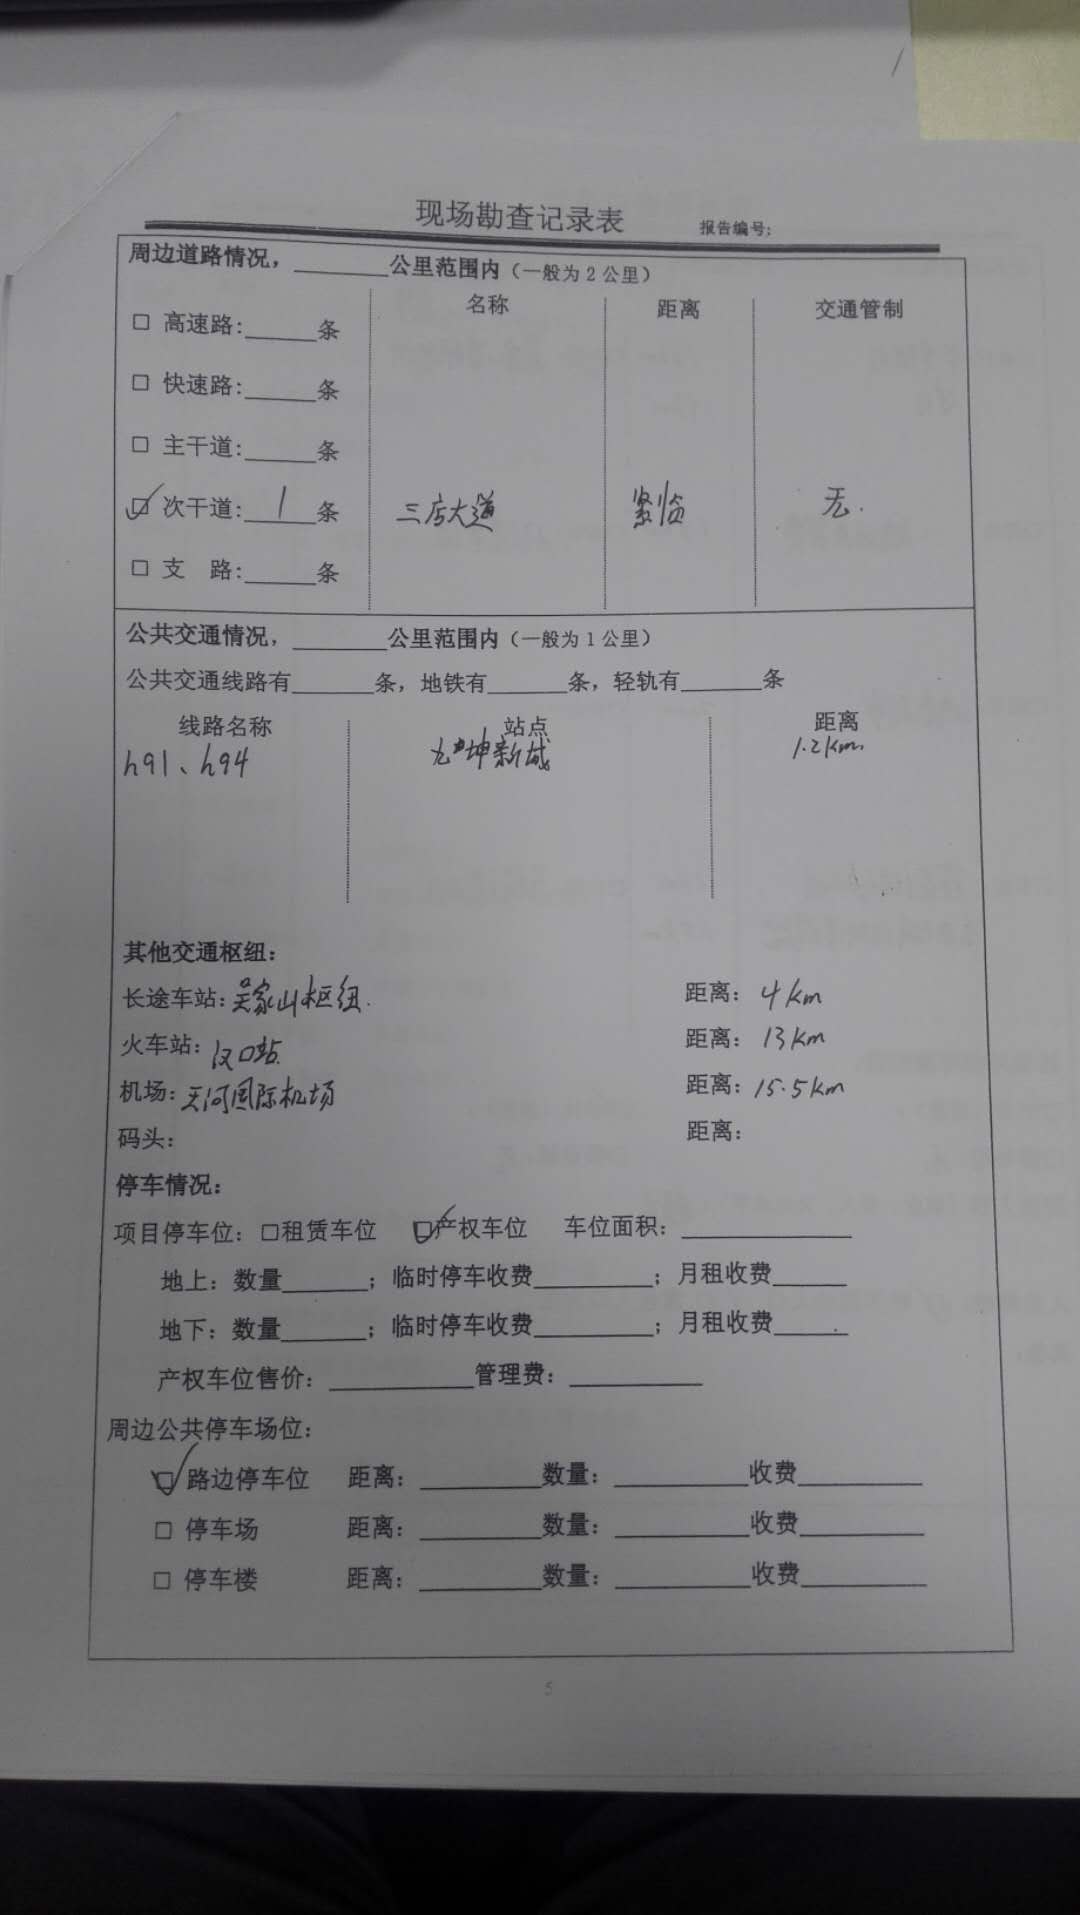 现场勘查记录表 报告编号:
周边道路情况，______公里范围内（一般为 2 公里）
名称 距离 交通管制
□ 高速路:_____条
□ 快速路:_____条
□ 主干道:_____条
☑ 次干道: 1 条 三店大道 紧临 无.
□ 支 路:_____条
公共交通情况，______公里范围内（一般为 1 公里）
公共交通线路有_____条，地铁有_____条，轻轨有_____条
线路名称 站点 距离
h91、h94 坤新城 1.2km.
其他交通枢纽:
长途车站: 吴家山枢纽. 距离: 4km
火车站: 汉口站. 距离: 13km
机场: 天河国际机场 距离: 15.5km
码头: 距离:
停车情况:
项目停车位: □租赁车位 ☑产权车位 车位面积:__________
地上: 数量_____; 临时停车收费_______; 月租收费_____
地下: 数量_____; 临时停车收费_______; 月租收费_____
产权车位售价: _________管理费: ________
周边公共停车场位:
☑ 路边停车位 距离: _______数量: ________收费_______
□ 停车场 距离: _______数量: ________收费_______
□ 停车楼 距离: _______数量: ________收费_______
5